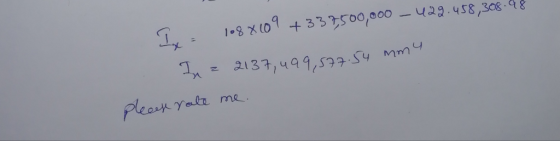 Ix = 1.8 x 10⁹ + 337,500,000 - 422.458,308.98
Ix = 2137,499,577.54 mm⁴
please rate me.